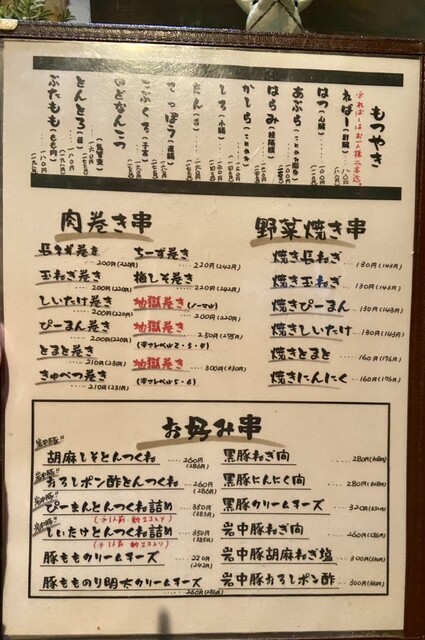 もつやき
※ればーはお一人様二本迄。
ればー(肝臓)
はつ(心臓)
あぶら
はらみ(横隔膜)
かしら
しろ(小腸)
たん(舌)
てっぽう(直腸)
こぶくろ(子宮)
のどなんこつ
とんとろ
ぶたもも
肉巻き串
長ネギ巻き
200円(220円)
玉ねぎ巻き
200円(220円)
しいたけ巻き
200円(220円)
ぴーまん巻き
200円(220円)
とまと巻き
210円(231円)
きゃべつ巻き
210円(231円)
ちーず巻き
220円(242円)
梅しそ巻き
220円(242円)
地獄巻き(ノーマル)
200円(220円)
地獄巻き
250円(275円)
(辛さレベル2・3・4)
地獄巻き
300円(330円)
(辛さレベル5・6)
野菜焼き串
焼き長ねぎ 130円(143円)
焼き玉ねぎ 130円(143円)
焼きぴーまん 130円(143円)
焼きしいたけ 130円(143円)
焼きとまと 160円(176円)
焼きにんにく 160円(176円)
お好み串
岩中豚!!
胡麻しそとんつくね 260円(286円)
岩中豚!!
おろしポン酢とんつくね 260円(286円)
岩中豚!!
ぴーまんとんつくね詰め 350円(385円)
岩中豚!!
しいたけとんつくね詰め 350円(385円)
豚ももクリームチーズ 220円(242円)
豚もものり明太クリームチーズ
260円(286円)
黒豚ねぎ間 280円(308円)
黒豚にんにく間 280円(308円)
黒豚クリームチーズ 320円
岩中豚ねぎ間 260円(286円)
岩中豚胡麻ねぎ塩 300円(330円)
岩中豚おろしポン酢 300円(330円)